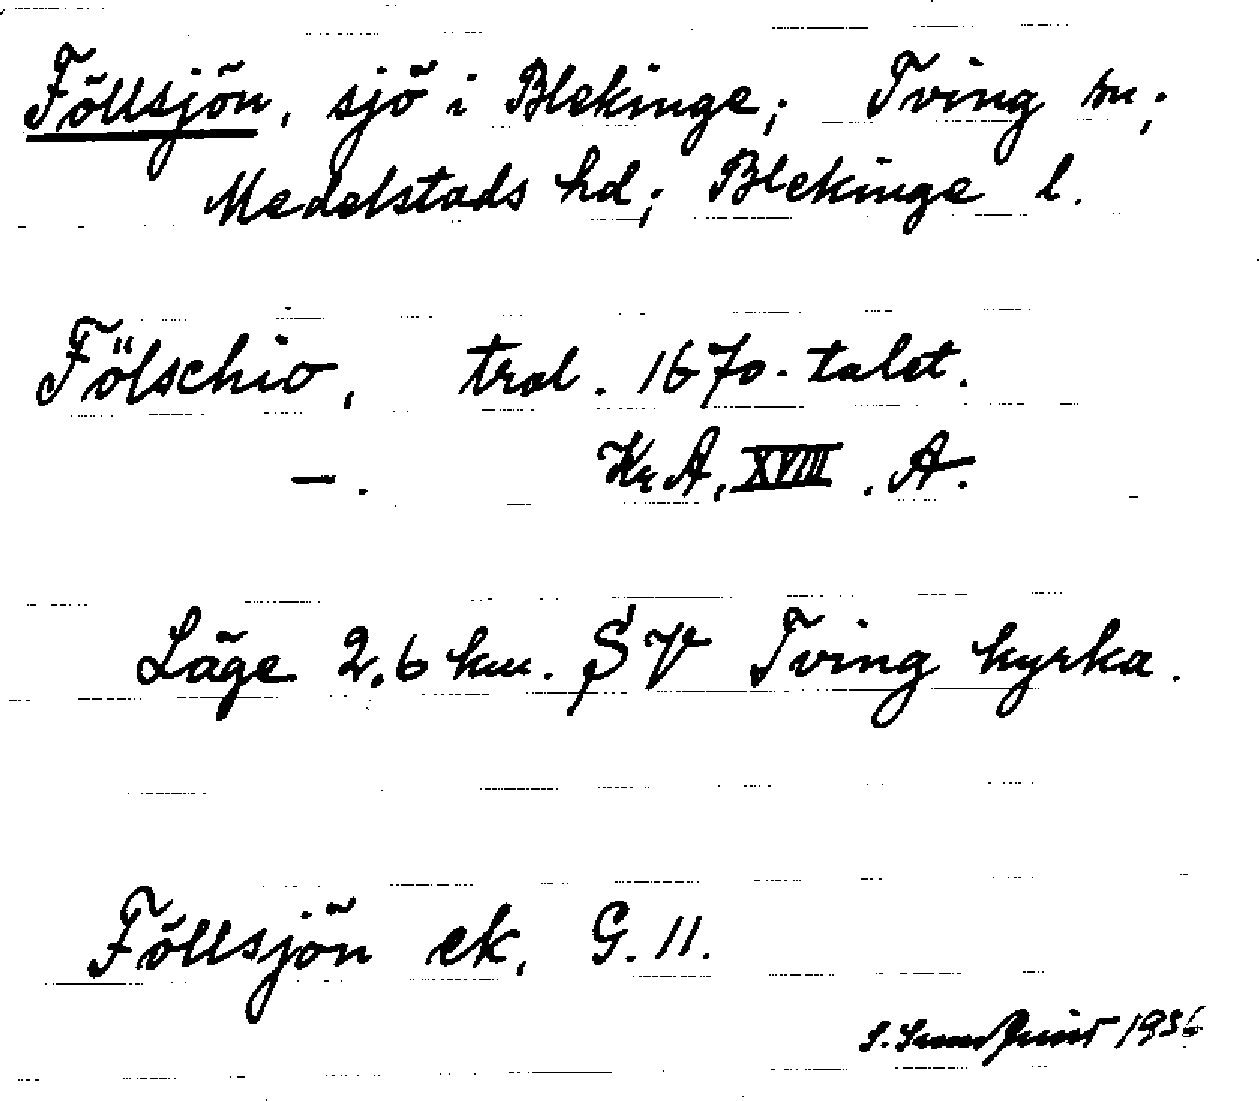 Föllsjön, sjö i Blekinge; Tving sn;
Medelstads hd; Blekinge l.
Fölschio, trol. 1670-talet.
—. KrA, XVIII. A.
Läge 2,6 km. SV Tving kyrka.
Föllsjön ek. G. 11.
S. 1936